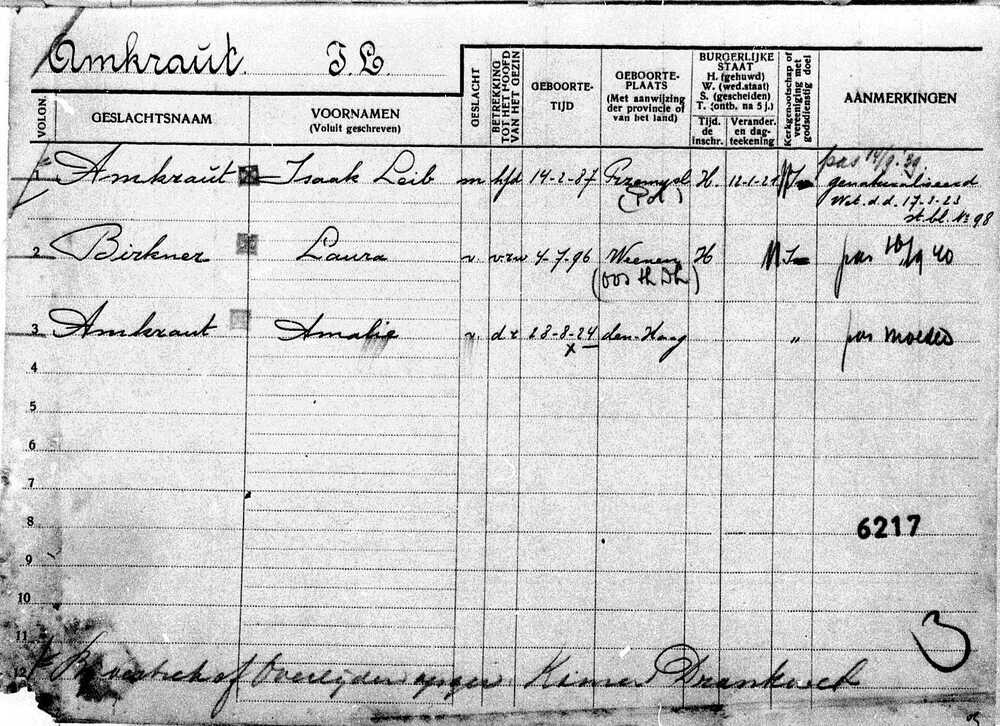 Amkraut. I. L.
VOLGN.
GESLACHTSNAAM
VOORNAMEN
(Voluit geschreven)
GESLACHT
BETREKKING
TOT HET HOOFD
VAN HET GEZIN
GEBOORTE-
TIJD
GEBOORTE-
PLAATS
(Met aanwijzing
der provincie of
van het land)
BURGERLIJKE
STAAT
H. (gehuwd)
W. (wed.staat)
S. (gescheiden)
T. (ontb. na 5 j.)
Tijd.
de
inschr.
Verander.
en dag-
teekening
Kerkgenootschap of
vereeniging met
godsdienstig doel
AANMERKINGEN
1 Amkraut Isaak Leib m hfd 14-2-87 Przemysl H. 12-1-21
(Pol) pas 14/9 39.
genaturaliseerd
Wet. d.d. 17-3-23
st. bl. No 98
2 Birkner Laura v. vrw 4-7-96 Weenen H pas 40
3 Amkraut Amalie v. dr 28-8-24 den-Haag " pas moeder
x
4
5
6
7
8
6217
9
10
11
3
12 of Overlijden Kamer Drankwet